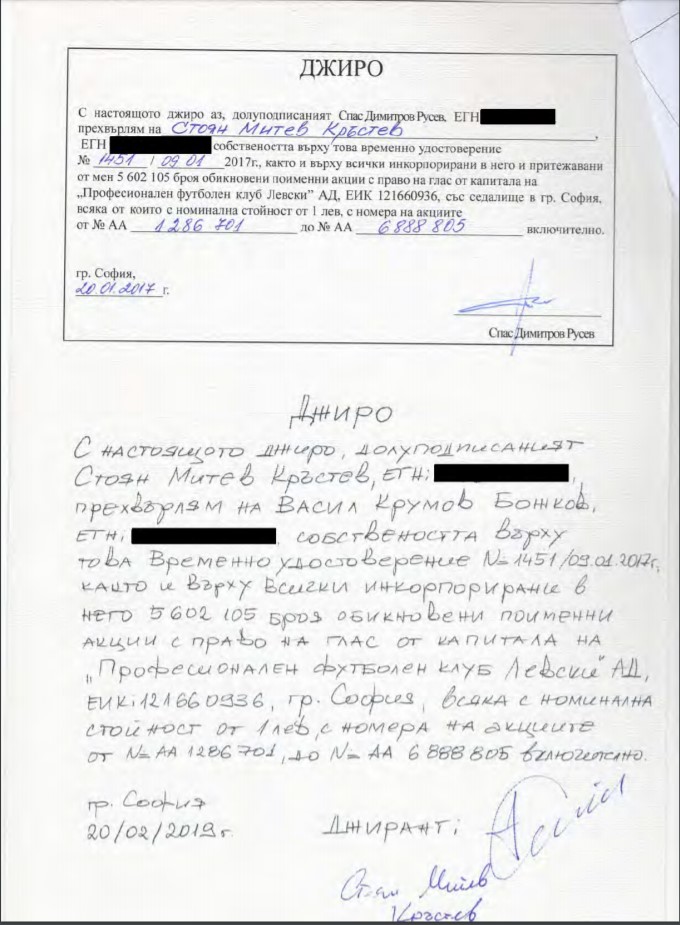 ДЖИРО
С настоящото джиро аз, долуподписаният Спас Димитров Русев, ЕГН
прехвърлям на Стоян Митев Кръстев,
ЕГН собствеността върху това временно удостоверение
№ 1451 / 09.01 2017г., както и върху всички инкорпорирани в него и притежавани
от мен 5 602 105 броя обикновени поименни акции с право на глас от капитала на
„Професионален футболен клуб Левски” АД, ЕИК 121660936, със седалище в гр. София,
всяка от които с номинална стойност от 1 лев, с номера на акциите
от № АА 1 286 701 до № АА 6 888 805 включително.
гр. София,
20.01.2017 г.
Спас Димитров Русев
Джиро
С настоящото джиро, долуподписаният
Стоян Митев Кръстев, ЕГН:
прехвърлям на Васил Крумов Божков,
ЕГН: собствеността върху
това Временно удостоверение №1451/09.01.2017г,
както и върху всички инкорпорирани в
него 5 602 105 броя обикновени поименни
акции с право на глас от капитала на
„Професионален футболен клуб Левски" АД,
ЕИК: 121660936, гр. София, всяка с номинална
стойност от 1 лев, с номера на акциите
от № АА 1286701, до № АА 6 888 805 включително.
гр. София
20/02/2019 г.
Джирант:
Стоян Митев
Кръстев